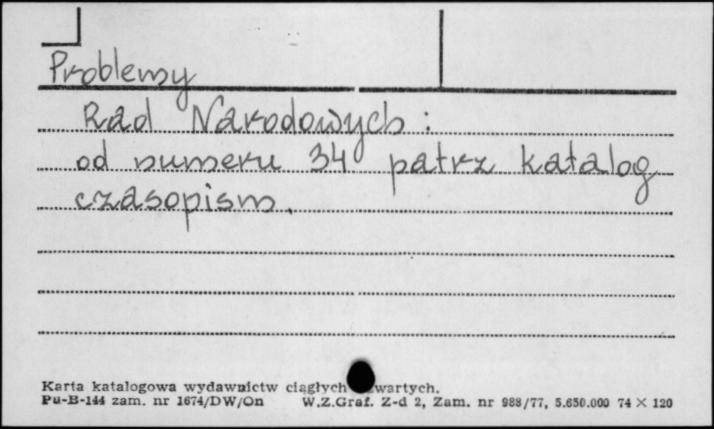 Problemy
Rad Narodowych :
od numeru 34 patrz katalog
czasopism.
Karta katalogowa wydawnictw ciągłych wartych.
Pu-B-144 zam. nr 1674/DW/On W.Z.Graf. Z-d 2, Zam. nr 988/77, 5.650.000 74 × 120